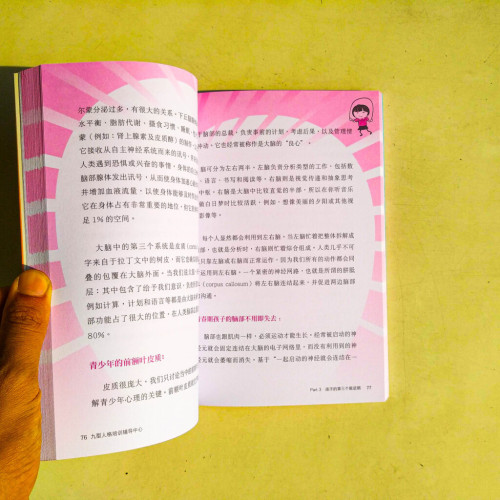 尔蒙分泌过多，有很大的关系。下丘脑
水平衡、脂肪代谢、摄食习惯、睡眠、
蒙（例如：肾上腺素及皮质醇）的
它接收从自主神经系统而来的讯号，
人类遇到恐惧或兴奋的事情，身体的
脑部腺体发出讯号，从而使身体
并增加血液流量，以使身体能够及时
它在身体占有非常重要的地位，但
足1%的空间。
大脑中的第三个系统是皮质
字来自于拉丁文中的树皮，而它
叠的包覆在大脑外面。当我们
层：其中包含了给予我们意识、
例如计算、计划和语言等都是由大脑
部功能占了很大的位置，在人类
80%。
青少年的前额叶皮质：
皮质很庞大，我们只讨论当中的
解青少年心理的关键。前额叶皮
76 九型人格培训辅导中心
于脑部的总裁，负责事前的计划，考虑后果，以及管理情
冲动，它也经常被称作是大脑的“良心”。
脑可分为左右两半，左脑负责分析类型的工作，包括数
、语言、书写和阅读等。右脑则是视觉传递和抽象思考
中枢。右脑是大脑中比较直觉的半部，所以在你听音乐
做白日梦时比较活跃，例如，想像美丽的夕阳或其他视
影像等。
每个人虽然都会利用到左右脑，当左脑忙着把整体拆解成
，也就是分析时，右脑则忙着综合组成。人类几乎不可
只靠左脑或右脑而正常运作，因为我们所有的活动都会
运用到左右脑。一个紧密的神经网路，也就是所谓的胼胝
（corpus callosum）将左右脑连结起来，并促进两边脑部
沟通。
青春期孩子的脑部不用即失去：
脑部也跟肌肉一样，必须运动才能生长。经常被启动的神
元就会固定连结在大脑的电子网络里，而没有利用到的神
元就会萎缩而消失。基于“一起启动的神经就会连结在一
Part 3：迷茫的第三个叛逆期 77